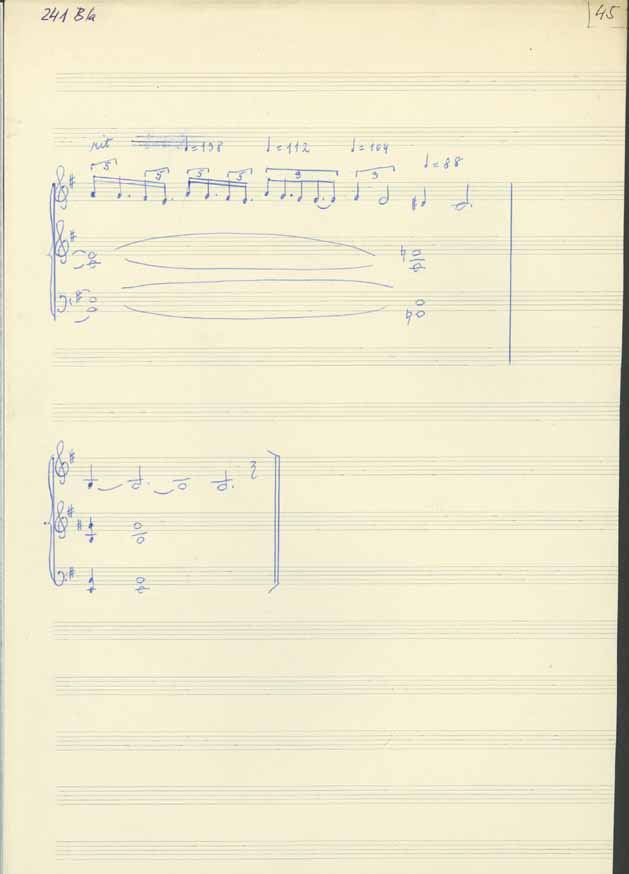 241 Bla 45
rit ♩=138 ♩=112 ♩=104
♩=88
5 5 5 5 9 3